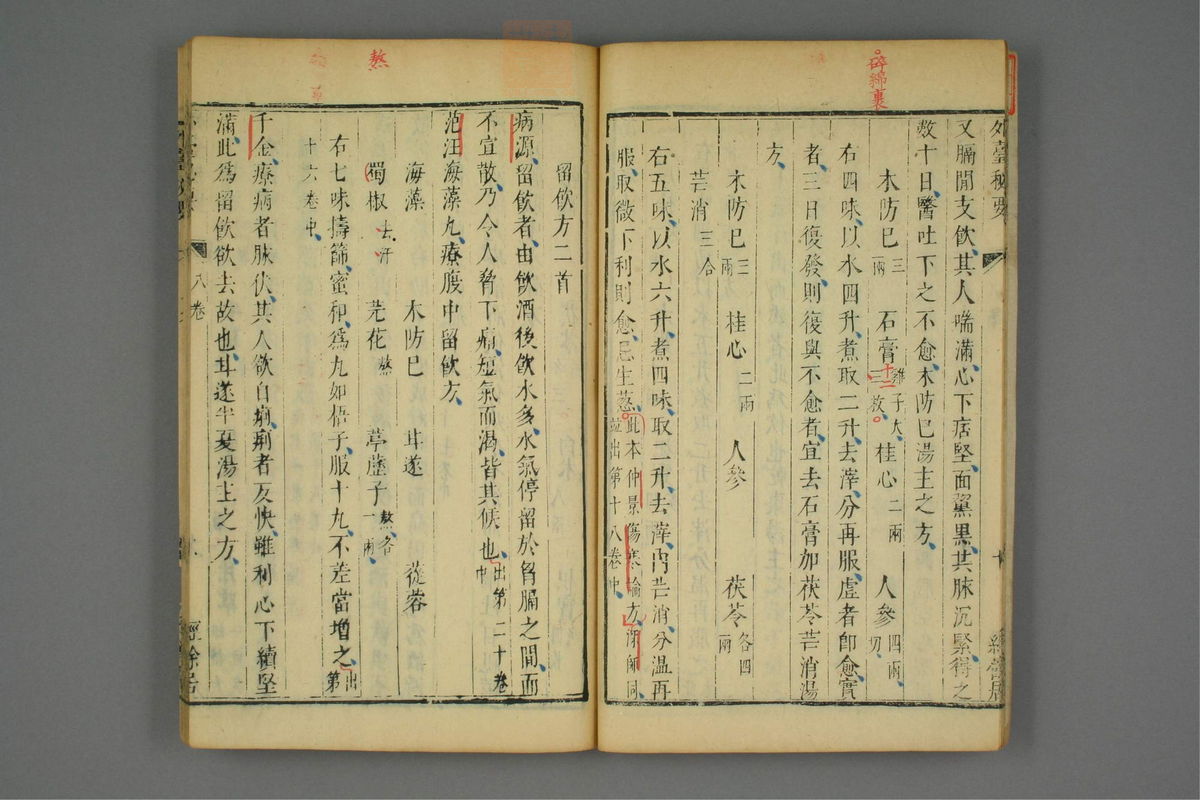 碎綿裹
外臺秘要
又膈間支飲其人喘滿心下痞堅面黧黑其脉沉緊得之
數十日醫吐下之不愈木防巳湯主之方
木防巳三兩 石膏雞子大三枚 十二 桂心二兩 人參四兩切
右四味以水四升煮取二升去滓分再服虛者卽愈實
者三日復發則復與不愈者宜去石膏加茯苓芒消湯
方
木防巳三兩 桂心二兩 人參 茯苓各四兩
芒消三合
右五味以水六升煮四味取二升去滓內芒消分溫再
服取微下利則愈忌生葱此本仲景傷寒論方深師同
並出第十八卷中
熬
留飲方二首
病源留飲者由飲酒後飲水多水氣停留於胷膈之間而
不宣散乃令人脅下痛短氣而渴皆其候也出第二十卷中
范汪海藻丸療腹中留飲方
海藻 木防巳 甘遂 蓯蓉
蜀椒去汗 芫花熬 葶藶子熬各一兩
右七味擣篩蜜和爲丸如梧子服十丸不差當增之出第
十六卷中
千金療病者脉伏其人欲自痢痢者反快雖利心下續堅
滿此爲留飲欲去故也甘遂半夏湯主之方
八卷
經餘居